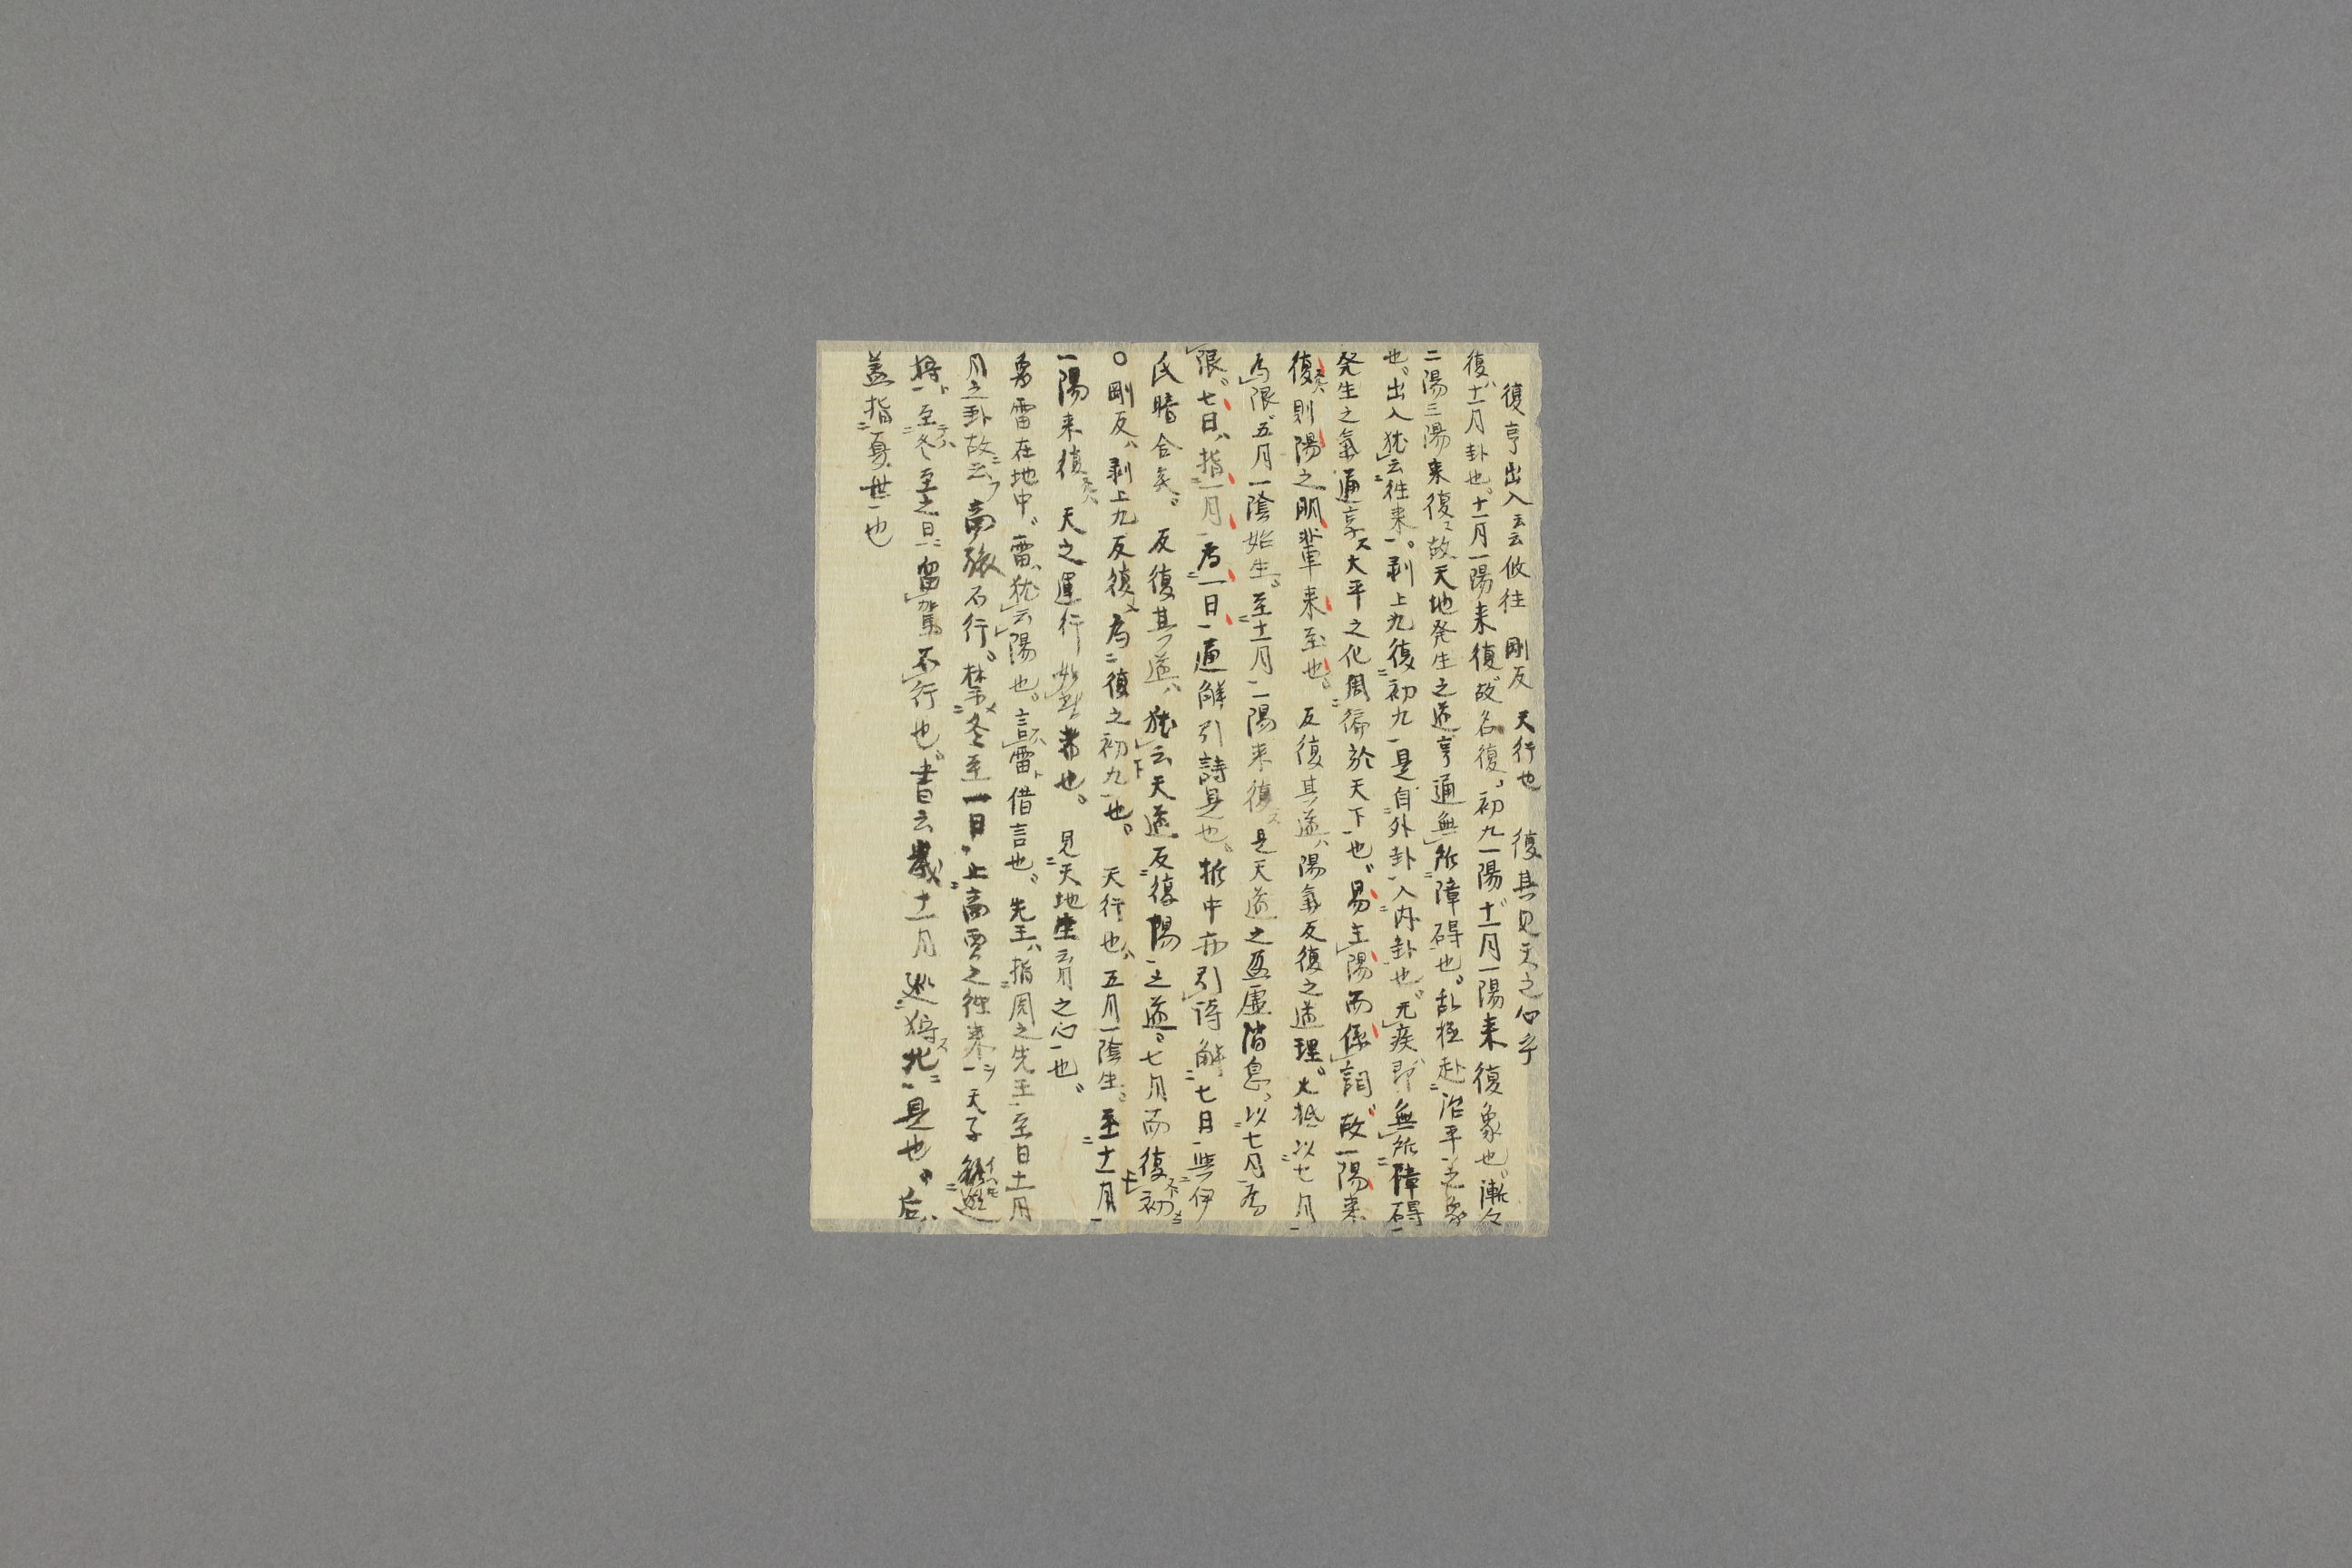 復亨出入云云攸往　剛反　天行也　復其見天之心乎
復ハ十一月卦也。十一月一陽来復故名復、初九一陽十一月一陽来復象也。漸々
二陽三陽来復、故天地発生之道亨通無所障碍也。乱極赴治平之象
也。出入猶云往来。剥上九復初九是自外卦入内卦也。无疾即無所障碍
発生之氣通享大平之化周徧於天下也。易主陽而係詞故一陽来
復則陽之朋輩来至也。反復其道ハ陽氣反復之道理。大抵以七月
為限。五月一陰始生。至十一月一陽来復ス是天道之盈虚消息、以七月為
限。七日ハ指一月為一日通解引詩是也。折中亦引詩解七日與伊
氏暗合矣。反復其道ハ猶云天道反復陽之道。七月而復初
〇剛反ハ剥上九反復メ為復之初九也。天行也ハ五月一陰生。至十一月
一陽来復　天之運行者也。見天地生育之心也。
象雷在地中。雷ハ猶云陽也。言雷ト借言也。先王ハ指周之先王至日十一月
月之卦故云フ商旅不行。禁メ冬至一日止商賈之往来ヲ天子
将ト至冬至之日留駕不行也。書云歳十一月巡狩ス北是也。后ハ
蓋指夏世也